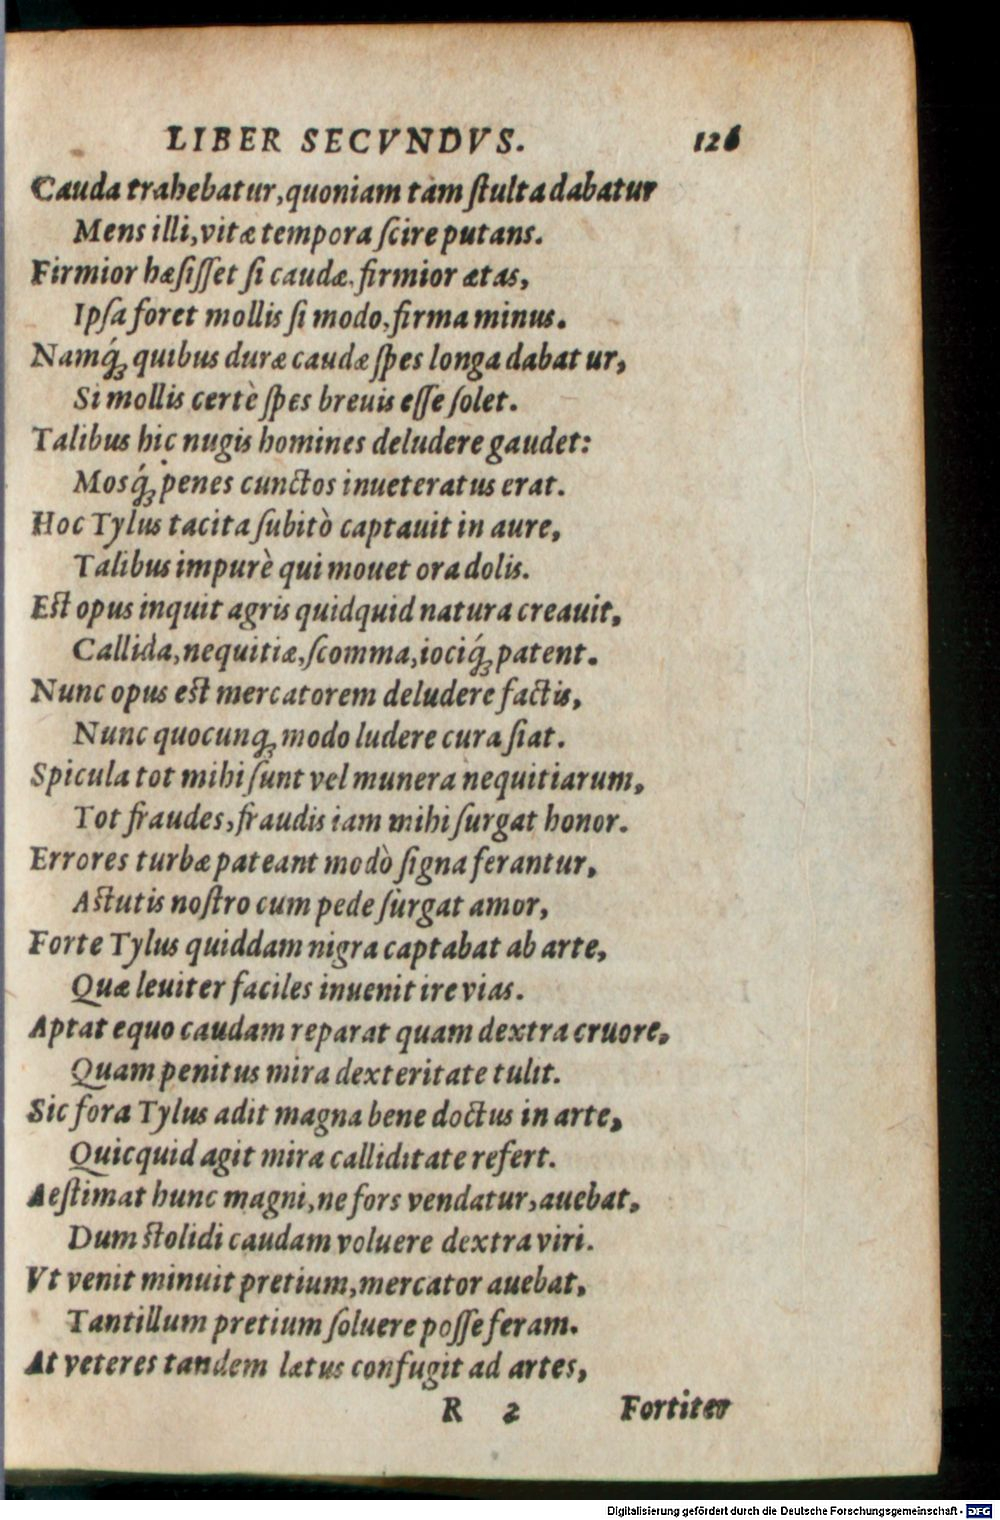 LIBER SECVNDVS. 126
Cauda trahebatur, quoniam tàm ſtulta dabatur
Mens illi, vitæ tempora ſcire putans.
Firmior hæſiſſet ſi caudæ, firmior ætas,
Ipſa foret mollis ſi modo, firma minus.
Namq́ꝫ quibus duræ caudæ ſpes longa dabatur,
Si mollis certè ſpes breuis eſſe ſolet.
Talibus hic nugis homines deludere gaudet:
Mosq́ꝫ penes cunctos inueteratus erat.
Hoc Tylus tacita ſubitò captauit in aure,
Talibus impurè qui mouet ora dolis.
Eſt opus inquit agris quidquid natura creauit,
Callida, nequitiæ, ſcomma, iociq́ꝫ patent.
Nunc opus eſt mercatorem deludere factis,
Nunc quocunqꝫ modo ludere cura ſiat.
Spicula tot mihi ſunt vel munera nequitiarum,
Tot fraudes, fraudis iam mihi ſurgat honor.
Errores turbæ pateant modò ſigna ferantur,
Aſtutis noſtro cum pede ſurgat amor,
Forte Tylus quiddam nigra captabat ab arte,
Quæ leuiter faciles inuenit ire vias.
Aptat equo caudam reparat quam dextra cruore,
Quam penitus mira dexteritate tulit.
Sic fora Tylus adit magna bene doctus in arte,
Quicquid agit mira calliditate refert.
Aeſtimat hunc magni, ne fors vendatur, auebat,
Dum ſtolidi caudam voluere dextra viri.
Vt venit minuit pretium, mercator auebat,
Tantillum pretium ſoluere poſſe feram.
At veteres tandem lætus confugit ad artes,
R 2 Fortiter
Digitalisierung gefördert durch die Deutsche Forschungsgemeinschaft - DFG